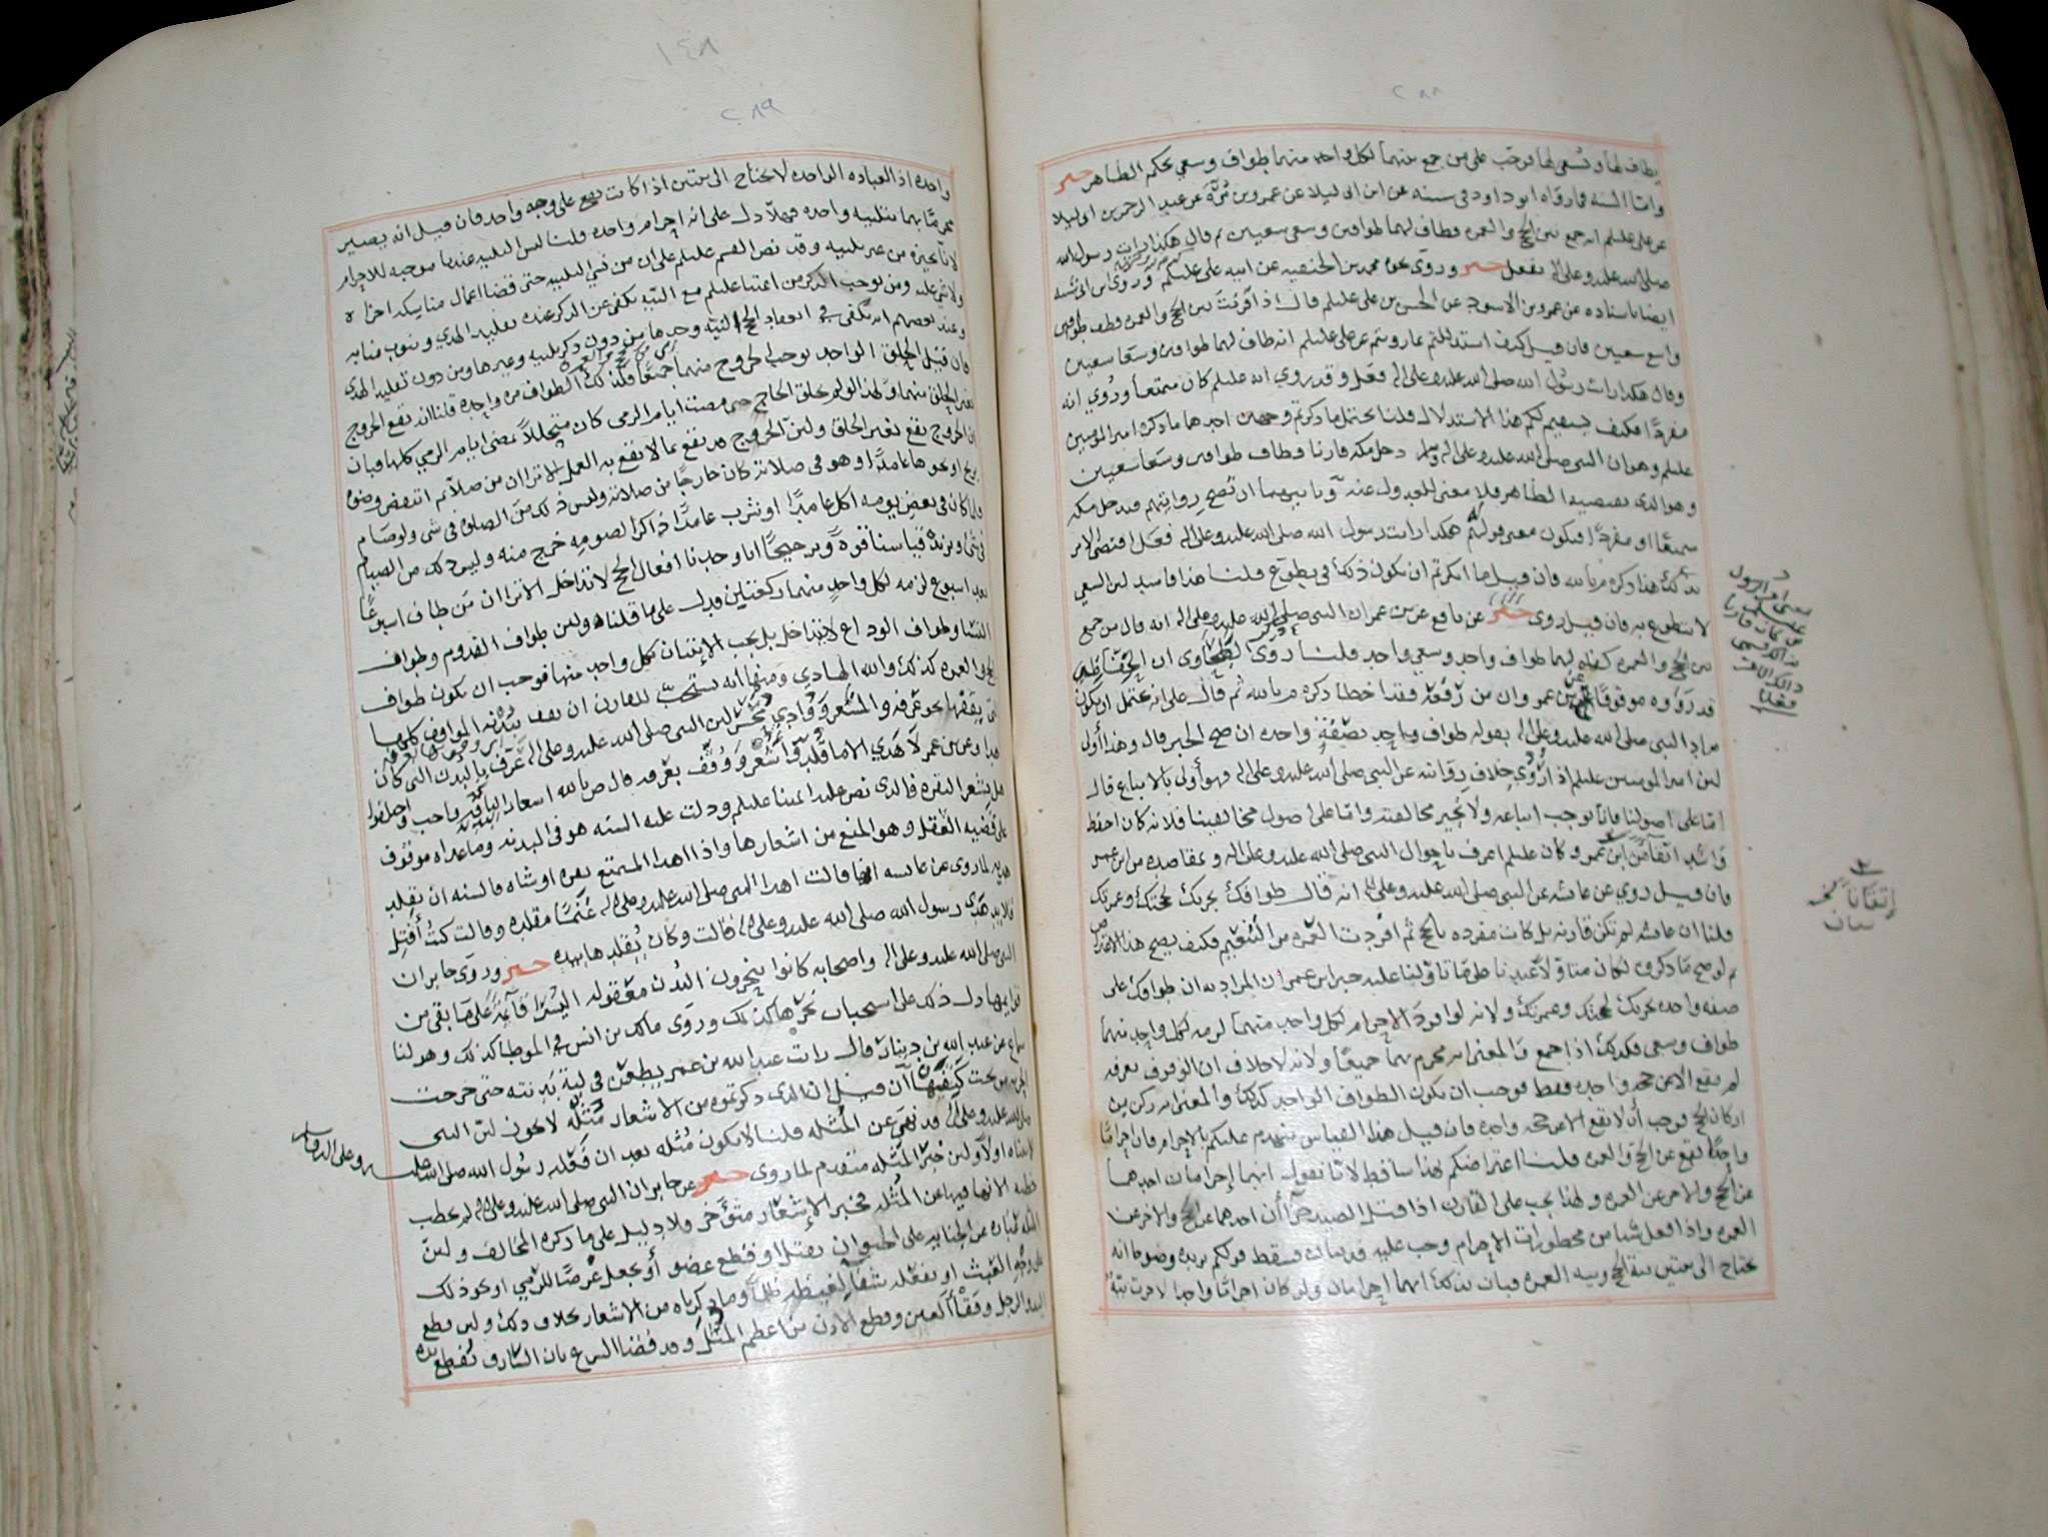 ٢٨٨
يطاف لها ويسعى لها فوجب على من جمع بينهما لكل واحد منهما طواف وسعي بحكم الظاهر خبر
واما السنه فما رواه ابو داود في سننه عن ابن ابي ليلا عن عمرو بن مُرَّة عن عبد الرحمن بن ابي ليلا
عن علي عليلم انه جمع بين الحج والعمره فطاف لهما طوافين وسعى سعيين ثم قال هكذا رايت رسول الله
صلى الله عليه وعلى اله يفعل خبر وروى نحوه محمد بن الحنفيه عن ابيه علي عليلم وروى ابن ابي شيبه
ايضا باسناده عن عمرو بن الاسود عن الحسن بن علي عليلم قال اذا قرنت بين الحج والعمره فطف طوافين
واسع سعيين فان قيل كيف استدللتم بما رويتم عن علي عليلم انه طاف لهما طوافين وسعا سعيين
وقال هكذا رايت رسول الله صلى الله عليه وعلى اله فعل وقد روي انه عليلم كان متمتعا وروي انه
مفردًا فكيف يستقيم لكم هذا الاستدلال قلنا يحتمل ما ذكرتم وجهين احدهما ما ذكره امير المومنين
عليلم وهو ان النبي صلى الله عليه وعلى اله وسلم دخل مكه قارنا وطاف طوافين وسعا سعيين
وهو الذي يقتضيه الظاهر فلا معنى للعدول عنه وثانيهما ان تصح روايتهم فيدخل مكه
متمتعًا او مفردًا فيكون معنى قوله هكذا رايت رسول الله صلى الله عليه وعلى اله فعل اقتضى الامر
بذلك هذا ذكره م بالله فان قيل ما انكرتم ان يكون ذلك في تطوع قلنا هذا فاسد لان السعي
لا يتطوع به فان قيل روي خبر عن نافع عن بن عمر ان النبي صلى الله عليه وعلى اله انه قال من جمع
بين الحج والعمره كفاه لهما طواف واحد وسعي واحد قلنا روى الطحاوي ان الحفاظ
قد رَوَوه موقوفًا على بن عمر وان من رَفَعَهُ فقد اخطا ذكره م بالله ثم قال على انه يحتمل ان يكون
مراد النبي صلى الله عليه وعلى اله بقوله طواف واحد بصفةٍ واحده ان صح الخبر قال وهذا أولى
لان امير المومنين عليلم اذا رُوي خلاف روايته عن النبي صلى الله عليه وعلى اله فهو أولى بالاتباع قال
امّا على اصولنا فانا نوجب اتباعه ولا نجيز مخالفته وامّا على اصول مخالفينا فلانه كان احفظ
واشد اتقانا من ابن عمر وكان عليلم اعرف باحوال النبي صلى الله عليه وعلى اله ومقاصده من ابن عمر
فان قيل روي عن عائشه عن النبي صلى الله عليه وعلى اله انه قال طوافك يجزيك لحجتك وعمرتك
قلنا ان عائشه لم تكن قارنه بل كانت مفرده بالحج ثم افردت العمره من التنعيم فكيف يصح هذا الاعتراض
ثم لو صح ما ذكروه لكان متاولا عندنا على ما تاولنا عليه خبر ابن عمر ان المراد به ان طوافك على
صفه واحده يجزيك لحجتك وعمرتك ولانه لو افرد الاحرام لكل واحد منهما لزمه لكل واحد منهما
طواف وسعي فكذلك اذا جمع والمعنى انه محرم بهما جميعًا ولانه لا خلاف ان الوقوف بعرفه
لم يقع الا عن حجه واحده فقط فوجب ان يكون الطواف الواحد كذلك والمعنى انه ركن من
اركان الحج فوجب أن لا يقع الا عن حجه واحده فان قيل هذا القياس ينهدم عليكم بالاحرام فان احرامًا
واحدًا يقع عن الحج والعمره قلنا اعتراضكم بهذا ساقط لانا نقول انهما إحرامان احدهما
عن الحج والاخر عن العمره ولهذا يجب على القارن اذا قتل الصيد جزاأن احدهما عن الحج والاخر عن
العمره واذا فعل شيا من محظورات الاحرام وجب عليه فديتان فسقط قولكم يزيده وضوحا انه
يحتاج الى نيتين نية الحج ونية العمره فبان بذلك انهما إحرامان ولو كان احرامًا واحدا لاجزت نيّةٌ
معنى امر الرسول
عليلم
من كان قارنا
إتقانًا نخ
بيان
١٤٨
٢٨٩
واحده اذ العباده الواحده لا يحتاج الى نيتين اذا كانت تقع على وجه واحد فان قيل انه يصير
محرمًا بهما بتلبيه واحده فهلّا دل على انه إحرام واحد قلنا ليس التلبيه عندنا موجبه للاحرام
لانا نجيزه من غير تلبيه وقد نص القسم عليلم على ان من نسي التلبيه حتى قضا اعمال مناسكه اجزاه
ولا شي عليه ومن يوجب الذكر من ائمتنا عليلم مع النيّه يكفي عن الذكر عنده تقليد الهدي وينوب منابه
وعند بعضهم انه يكفي في انعقاد الحج النيّه وحدها من دون ذكر تلبيه وغيرها ومن دون تقليد الهدي
فان قيل الحلق الواحد يوجب الخروج منهما جميعًا فكذلك الطواف من واحده قلنا انه يقع الخروج
بغير الحلق منهما ولهذا لو لم يحلق الحاج حتى مضت ايام الرمي كان متحللًا بمضي ايام الرمي كلها فبان
ان الخروج يقع بغير الحلق ولان الخروج قد يقع بما لا يقع به العمل الا ترا ان من صلا ثم انتقض وضوه
بريح او نحوها عامدًا وهو في صلاته كان خارجًا من صلاته وليس ذلك من الصلوه في شي ولو صام
ولو كان في بعض يومه اكل عامدًا او شرب عامدًا ذاكرا لصومه خرج منه وليس ذلك من الصيام
في شي ويزيده قياسنا قوة وترجيحًا انا وجدنا افعال الحج لا تتداخل الا ترا ان من طاف اسبوعًا
بعد اسبوع لزمه لكل واحد منهما ركعتين فدل على ما قلناه ولان طواف القدوم وطواف
النسا وطواف الوداع لا يتداخل بل يجب الإتيان بكل واحد منها فوجب ان يكون طواف
الحج والعمره كذلك والله الهادي ومنها انه يستحبّ للقارن ان يقف بَدَنَتِه المواقف كلها
التي يقفها نحو عرفه والمشعر ووادي مُحَسِّر لان النبي صلى الله عليه وعلى اله عَرَّف بالبُدن التي كان
هدا وعن بن عمر لا هدي الا ما قُلِّد وأُشعر ووُقِّف بعرفه قال م بالله اشعار البدنه واجب واختلفوا
هل يشعر البقره فالذي نص عليه ائمتنا عليلم ودلت عليه السنه هو في البدنه وما عداه موقوف
على قضيه العقل وهو المنع من اشعارها واذا اهدا المتمتع بقره او شاه فالسنه ان يقلد
هديه لما روي عن عائشه انها قالت اهدا النبي صلى الله عليه وعلى اله غَنَمًا مقلده وقالت كنتُ أَفتِل
قلايد هَدي رسول الله صلى الله عليه وعلى اله قالت وكان يُقلدها بيده خبر وروى جابر ان
النبي صلى الله عليه وعلى اله واصحابه كانوا ينحرون البُدن معقوله اليسرا قائمةً على ما بقي من
قوايمها دل ذلك على استحباب نحرها كذلك وروى مالك بن انس في الموطا كذلك وهو لنا
سماع عن عبد الله بن دينار قال رايت عبد الله بن عمر يطعن في لبة بَدنته حتى خرجت
الحربه من تحت كَتِفها فان قيل ان الذي ذكرتموه من الاشعار مُثلَه لا يجوز لان النبي
صلى الله عليه وعلى اله قد نهى عن المُثله قلنا لا يكون مُثله بعد ان فَعَلَه رسُول الله صلى الله عليه وعلى اله وسلم
لانه اولًا ولان خبر المُثله متقدم لما روي خبر عن جابر ان النبي صلى الله عليه وعلى اله لم يخطب
خطبه الا نها فيها عن المُثله فخبر الإشعار متؤخر ولا دليل على ما ذكره المخالف ولان
المثله عباره عن الجنايه على الحيوان بقتل او قطع عضو أو بجعل غرضًا للرمي او نحو ذلك
على وجه العبث او بفعله شفا لغيظه ظلمًا وما ذكرناه من الاشعار بخلاف ذلك ولان قطع
اليد والرجل وفقأ العين وقطع الاذن من اعظم المُثَل وقد قضا الشرع بان السارق تُقطع يده